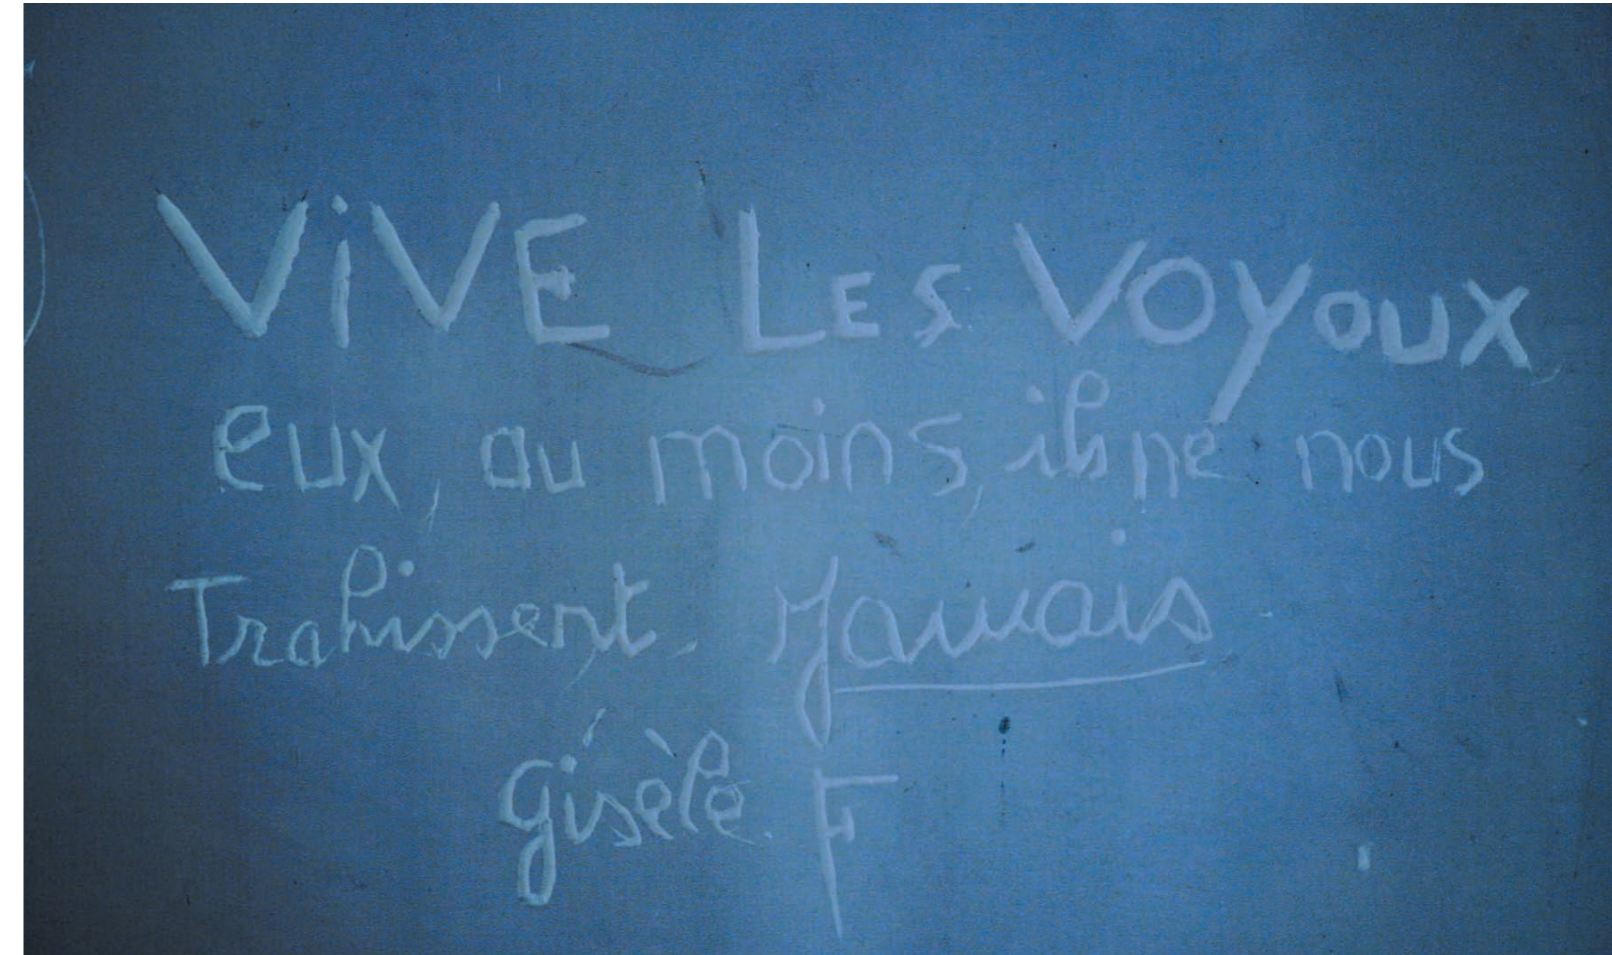 ViVE LEs VOYOUX
eux, au moins, ils ne nous
Trahissent. Jamais
gisèle. F